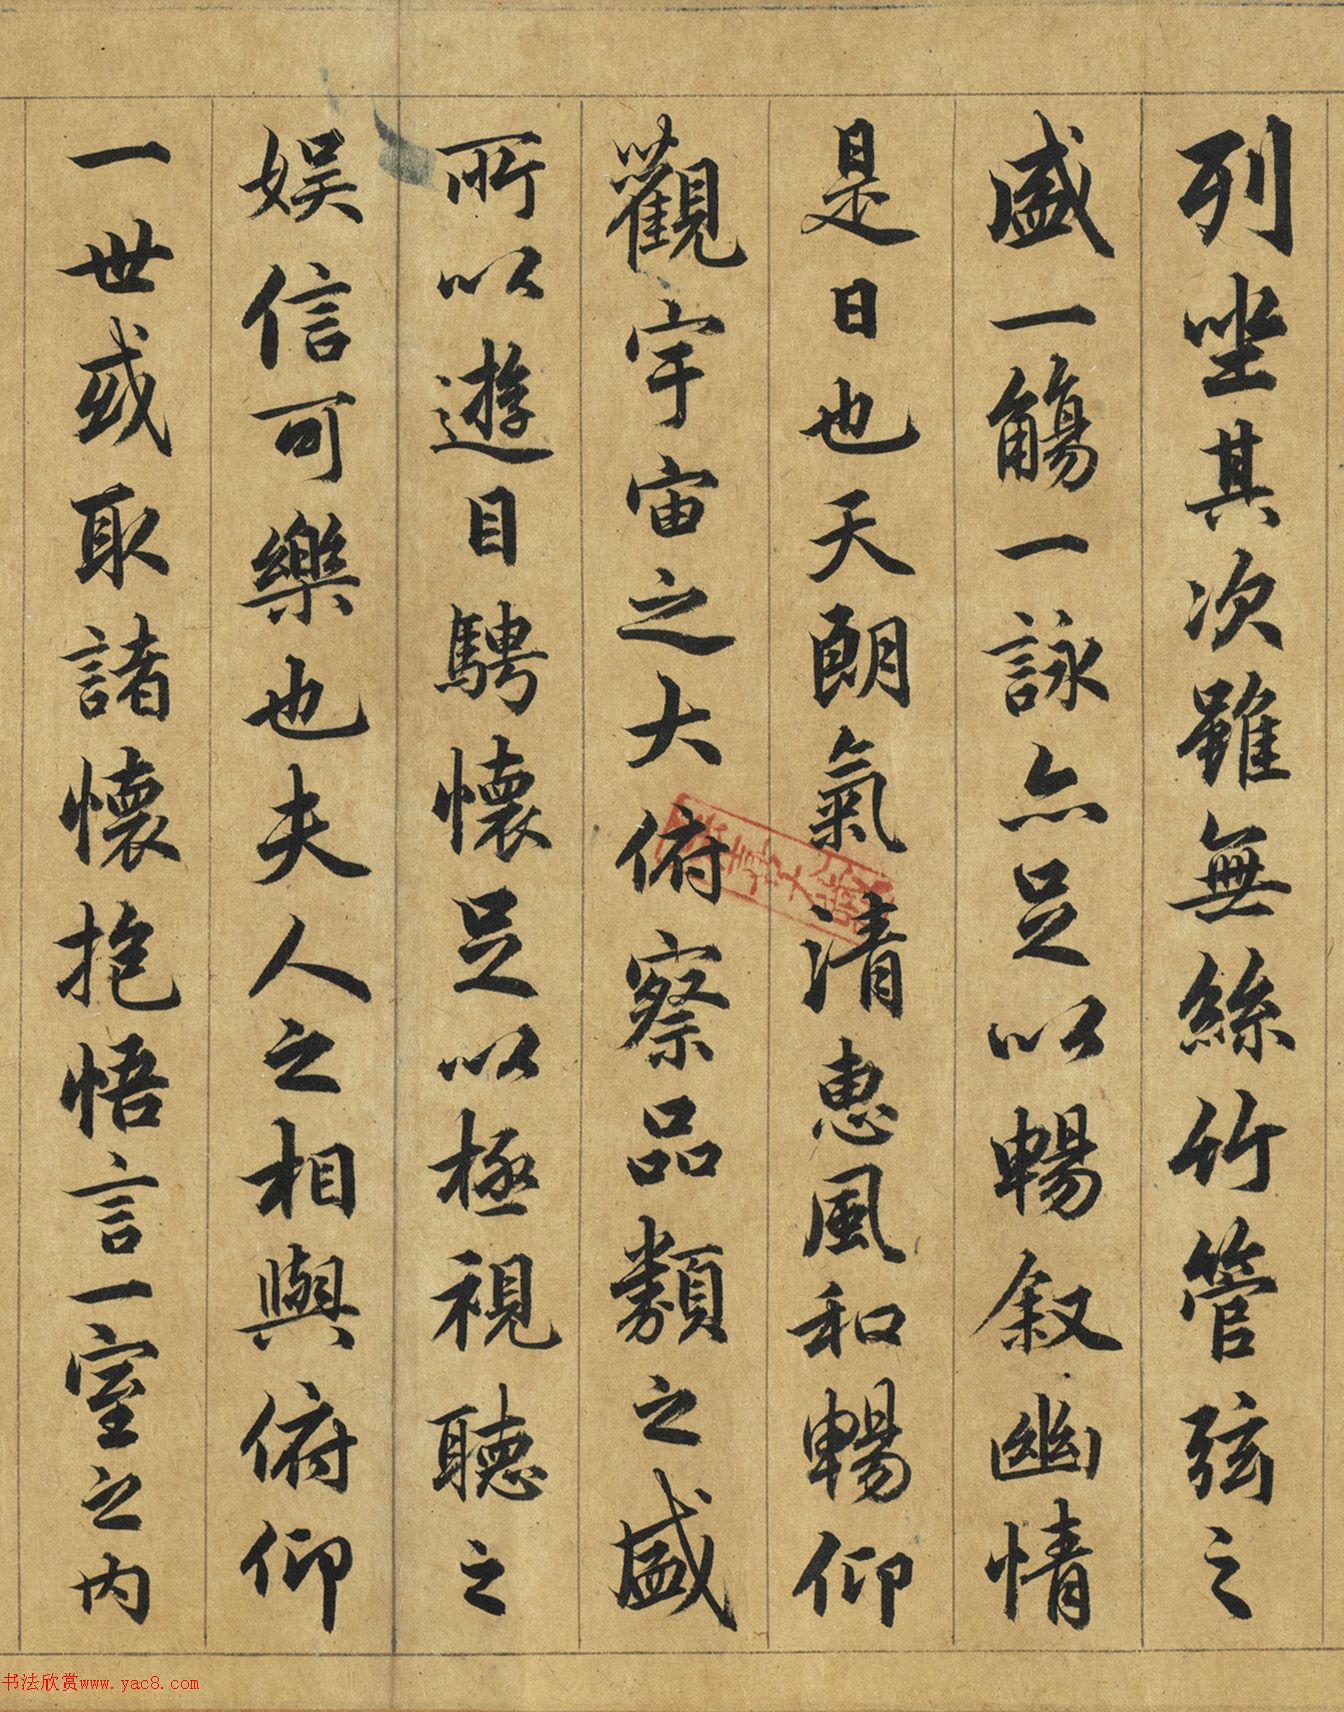 列坐其次雖無絲竹管弦之
盛一觴一詠亦足以暢叙幽情
是日也天朗氣清惠風和暢仰
觀宇宙之大俯察品類之盛
所以遊目騁懷足以極視聽之
娛信可樂也夫人之相與俯仰
一世或取諸懷抱悟言一室之內
书法欣赏www.yac8.com